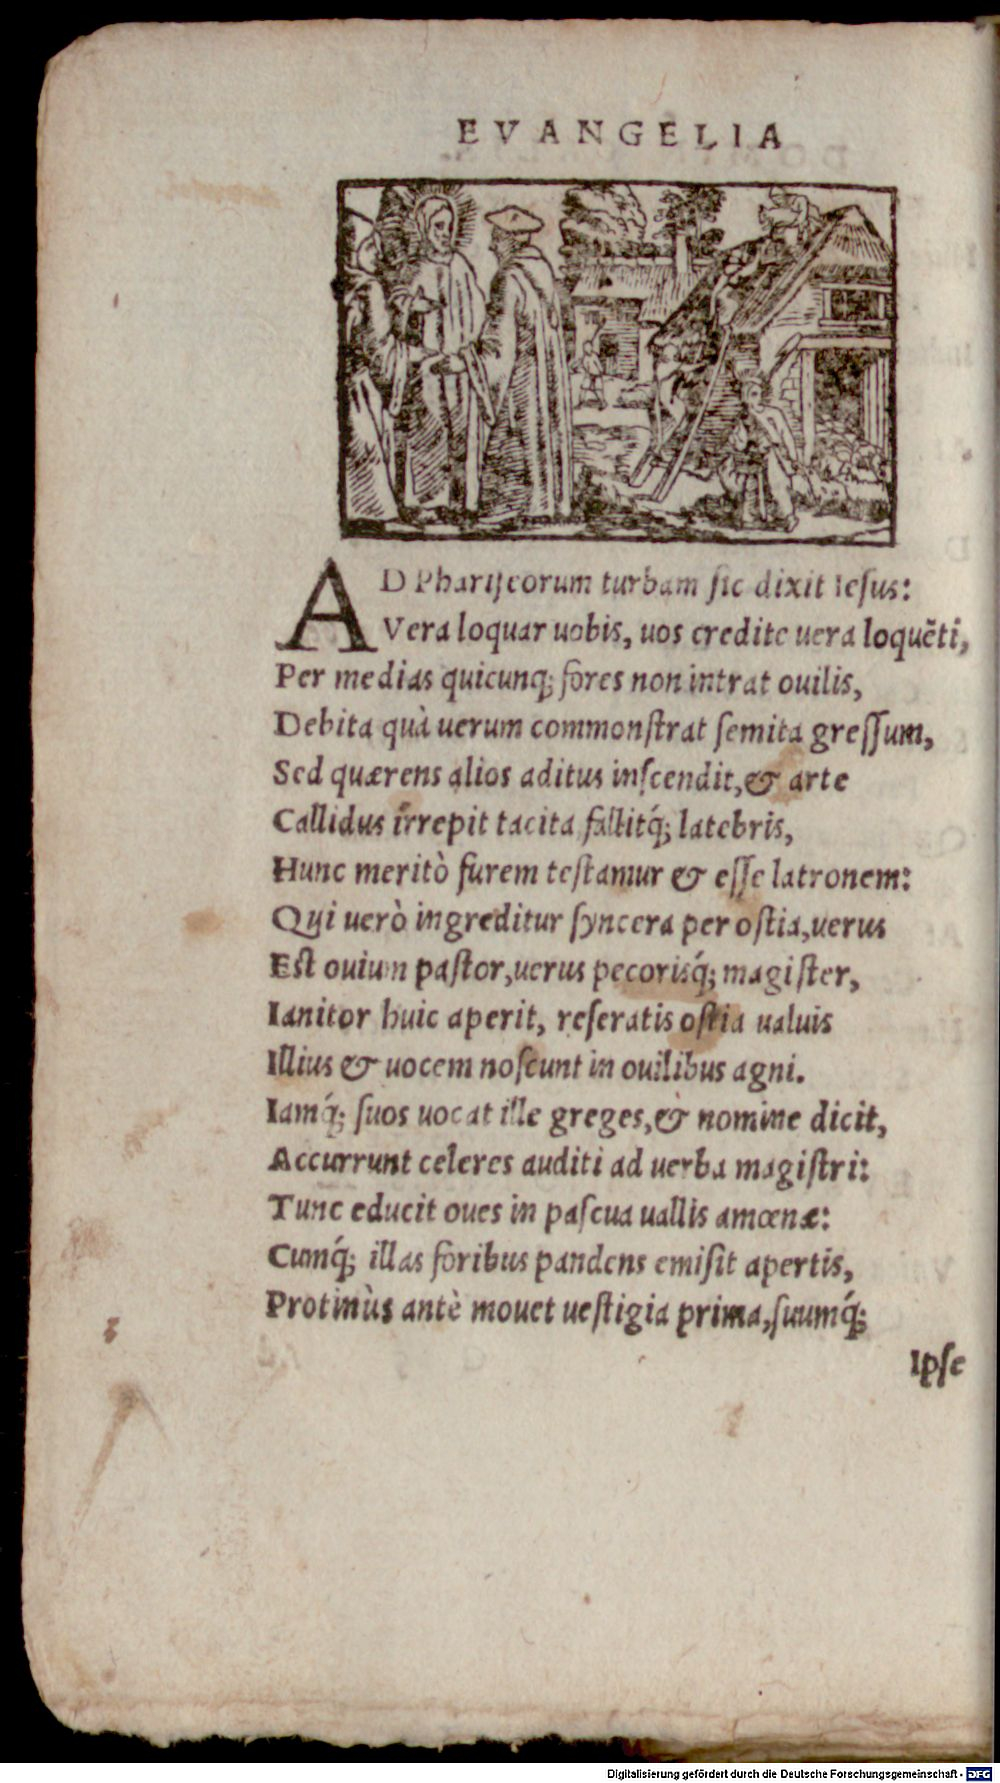 EVANGELIA
AD Pharisæorum turbam sic dixit Iesus:
Vera loquar uobis, uos credite uera loquẽti,
Per medias quicunq; fores non intrat ouilis,
Debita quà uerum commonstrat semita gressum,
Sed quærens alios aditus inscendit, & arte
Callidus irrepit tacita fallitq́; latebris,
Hunc meritò furem testamur & esse latronem:
Qui uerò ingreditur syncera per ostia, uerus
Est ouium pastor, uerus pecorisq́; magister,
Ianitor huic aperit, reseratis ostia ualuis
Illius & uocem noscunt in ouilibus agni.
Iamq́; suos uocat ille greges, & nomine dicit,
Accurrunt celeres auditi ad uerba magistri:
Tunc educit oues in pascua uallis amœnæ:
Cumq́; illas foribus pandens emisit apertis,
Protinùs antè mouet uestigia prima, suumq́;
Ipse
Digitalisierung gefördert durch die Deutsche Forschungsgemeinschaft - DFG